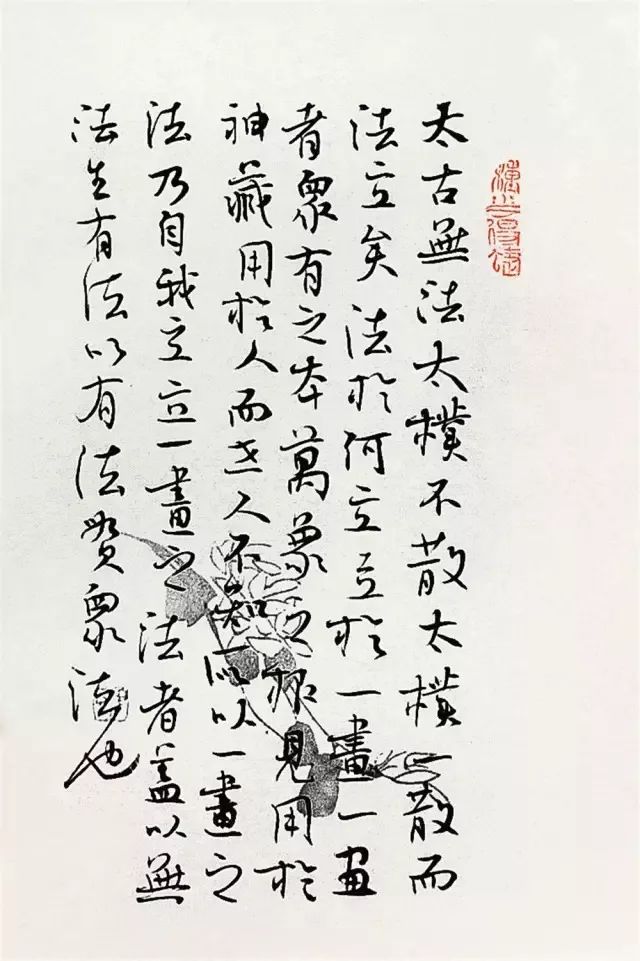 太古無法太樸不散太樸一散而
法立矣法於何立立於一畫一畫
者眾有之本萬象之根見用於
神藏用於人而世人不知所以一畫之
法乃自我立立一畫之法者蓋以無
法生有法以有法貫眾法也